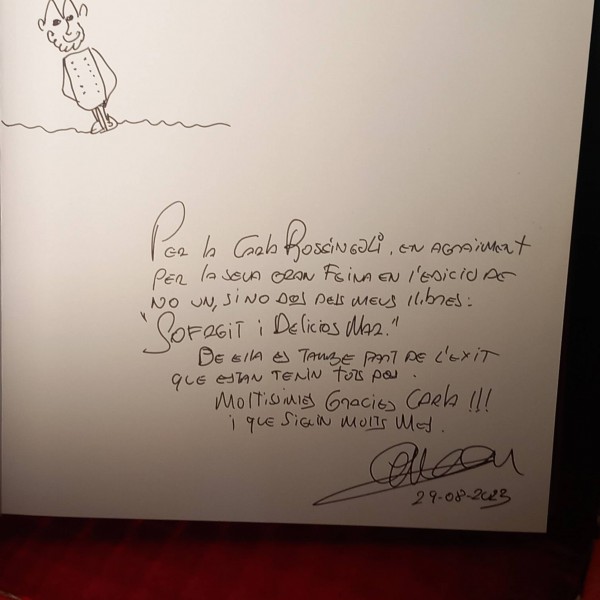 PER la Carla Rossingoli, EN AGRAIMENT
PER la SEUA GRAN FEINA EN l'EDICIO DE
NO UN, SI NO DOS DELS MEUS llIBRES:
"SOFREGIT i DELICIOS MAR."
DE ElLA ES TAMBE PART DE L'EXIT
QUE ESTAN TENIN TOTS DOS.
MOLTISIMES GRACIES CARLA !!!
i QUE SIGUIN MOLTS MES.
29-08-2023